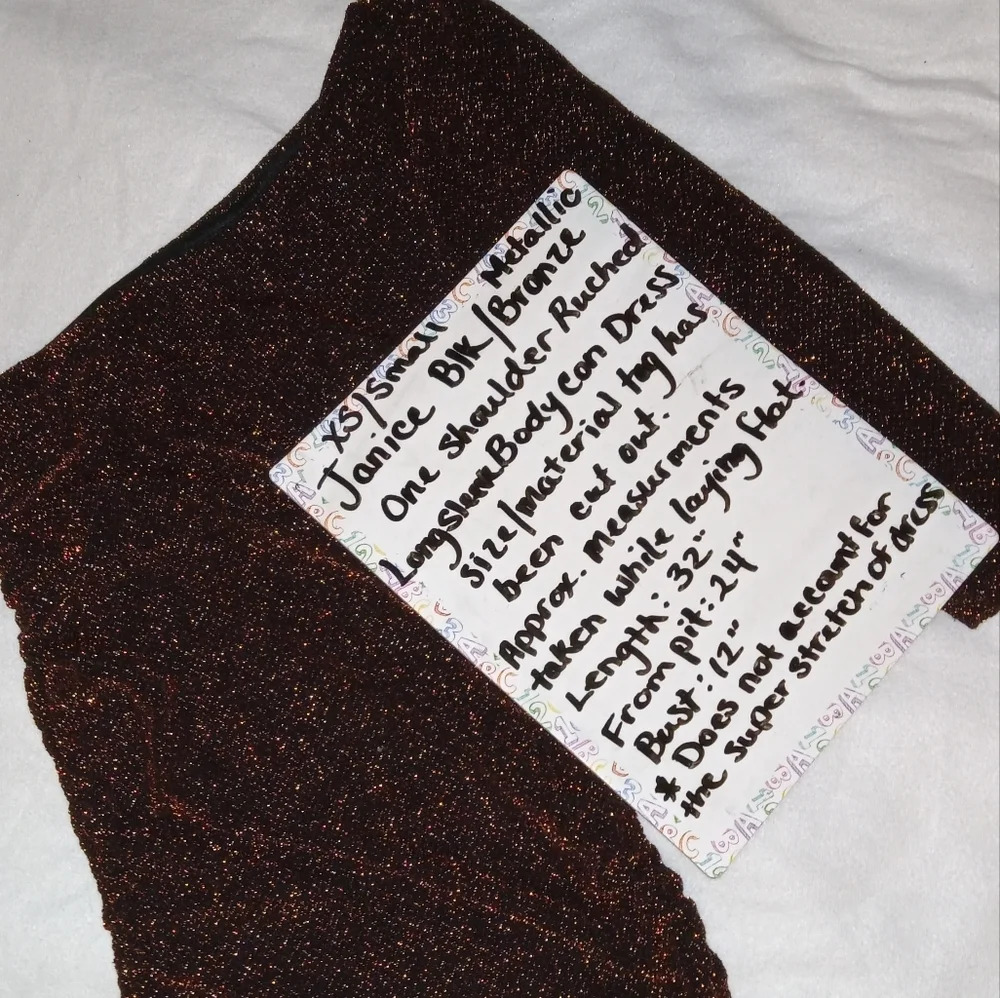 XS/Small Metallic
Janice Blk/Bronze
One Shoulder Ruched
LongsleeveBodycon Dress
Size/material tag has
been cut out.
Approx. measurments
taken while laying flat.
Length: 32"
From pit: 24"
Bust: 12"
* Does not account for
the super stretch of dress